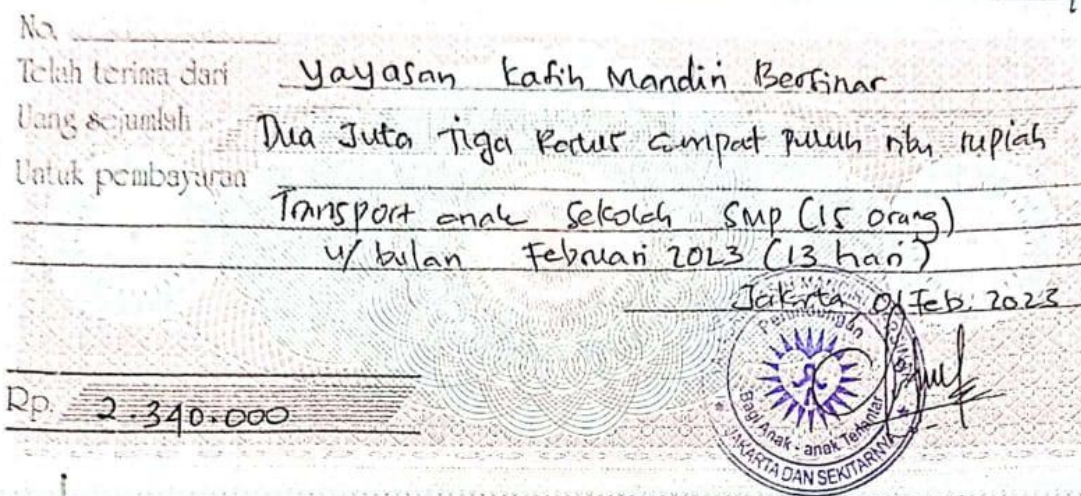 No.
Telah terima dari Yayasan Kasih Mandiri Bersinar
Uang sejumlah Dua Juta Tiga Ratus empat puluh ribu rupiah
Untuk pembayaran
Transport anak Sekolah SMP (15 orang)
u/ bulan Februari 2023 (13 hari)
Jakarta, 01 Feb. 2023
Perlindungan
Bagi Anak - anak Terlantar
JAKARTA DAN SEKITARNYA
Rp. 2.340.000